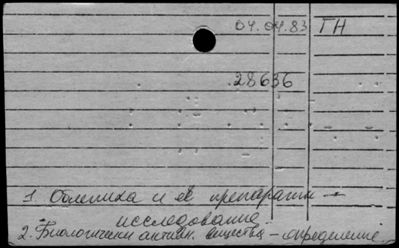 04.04.83 ГН
28636
1. Облепиха и её препараты –
исследование
2. Биологически активн. вещества – определение